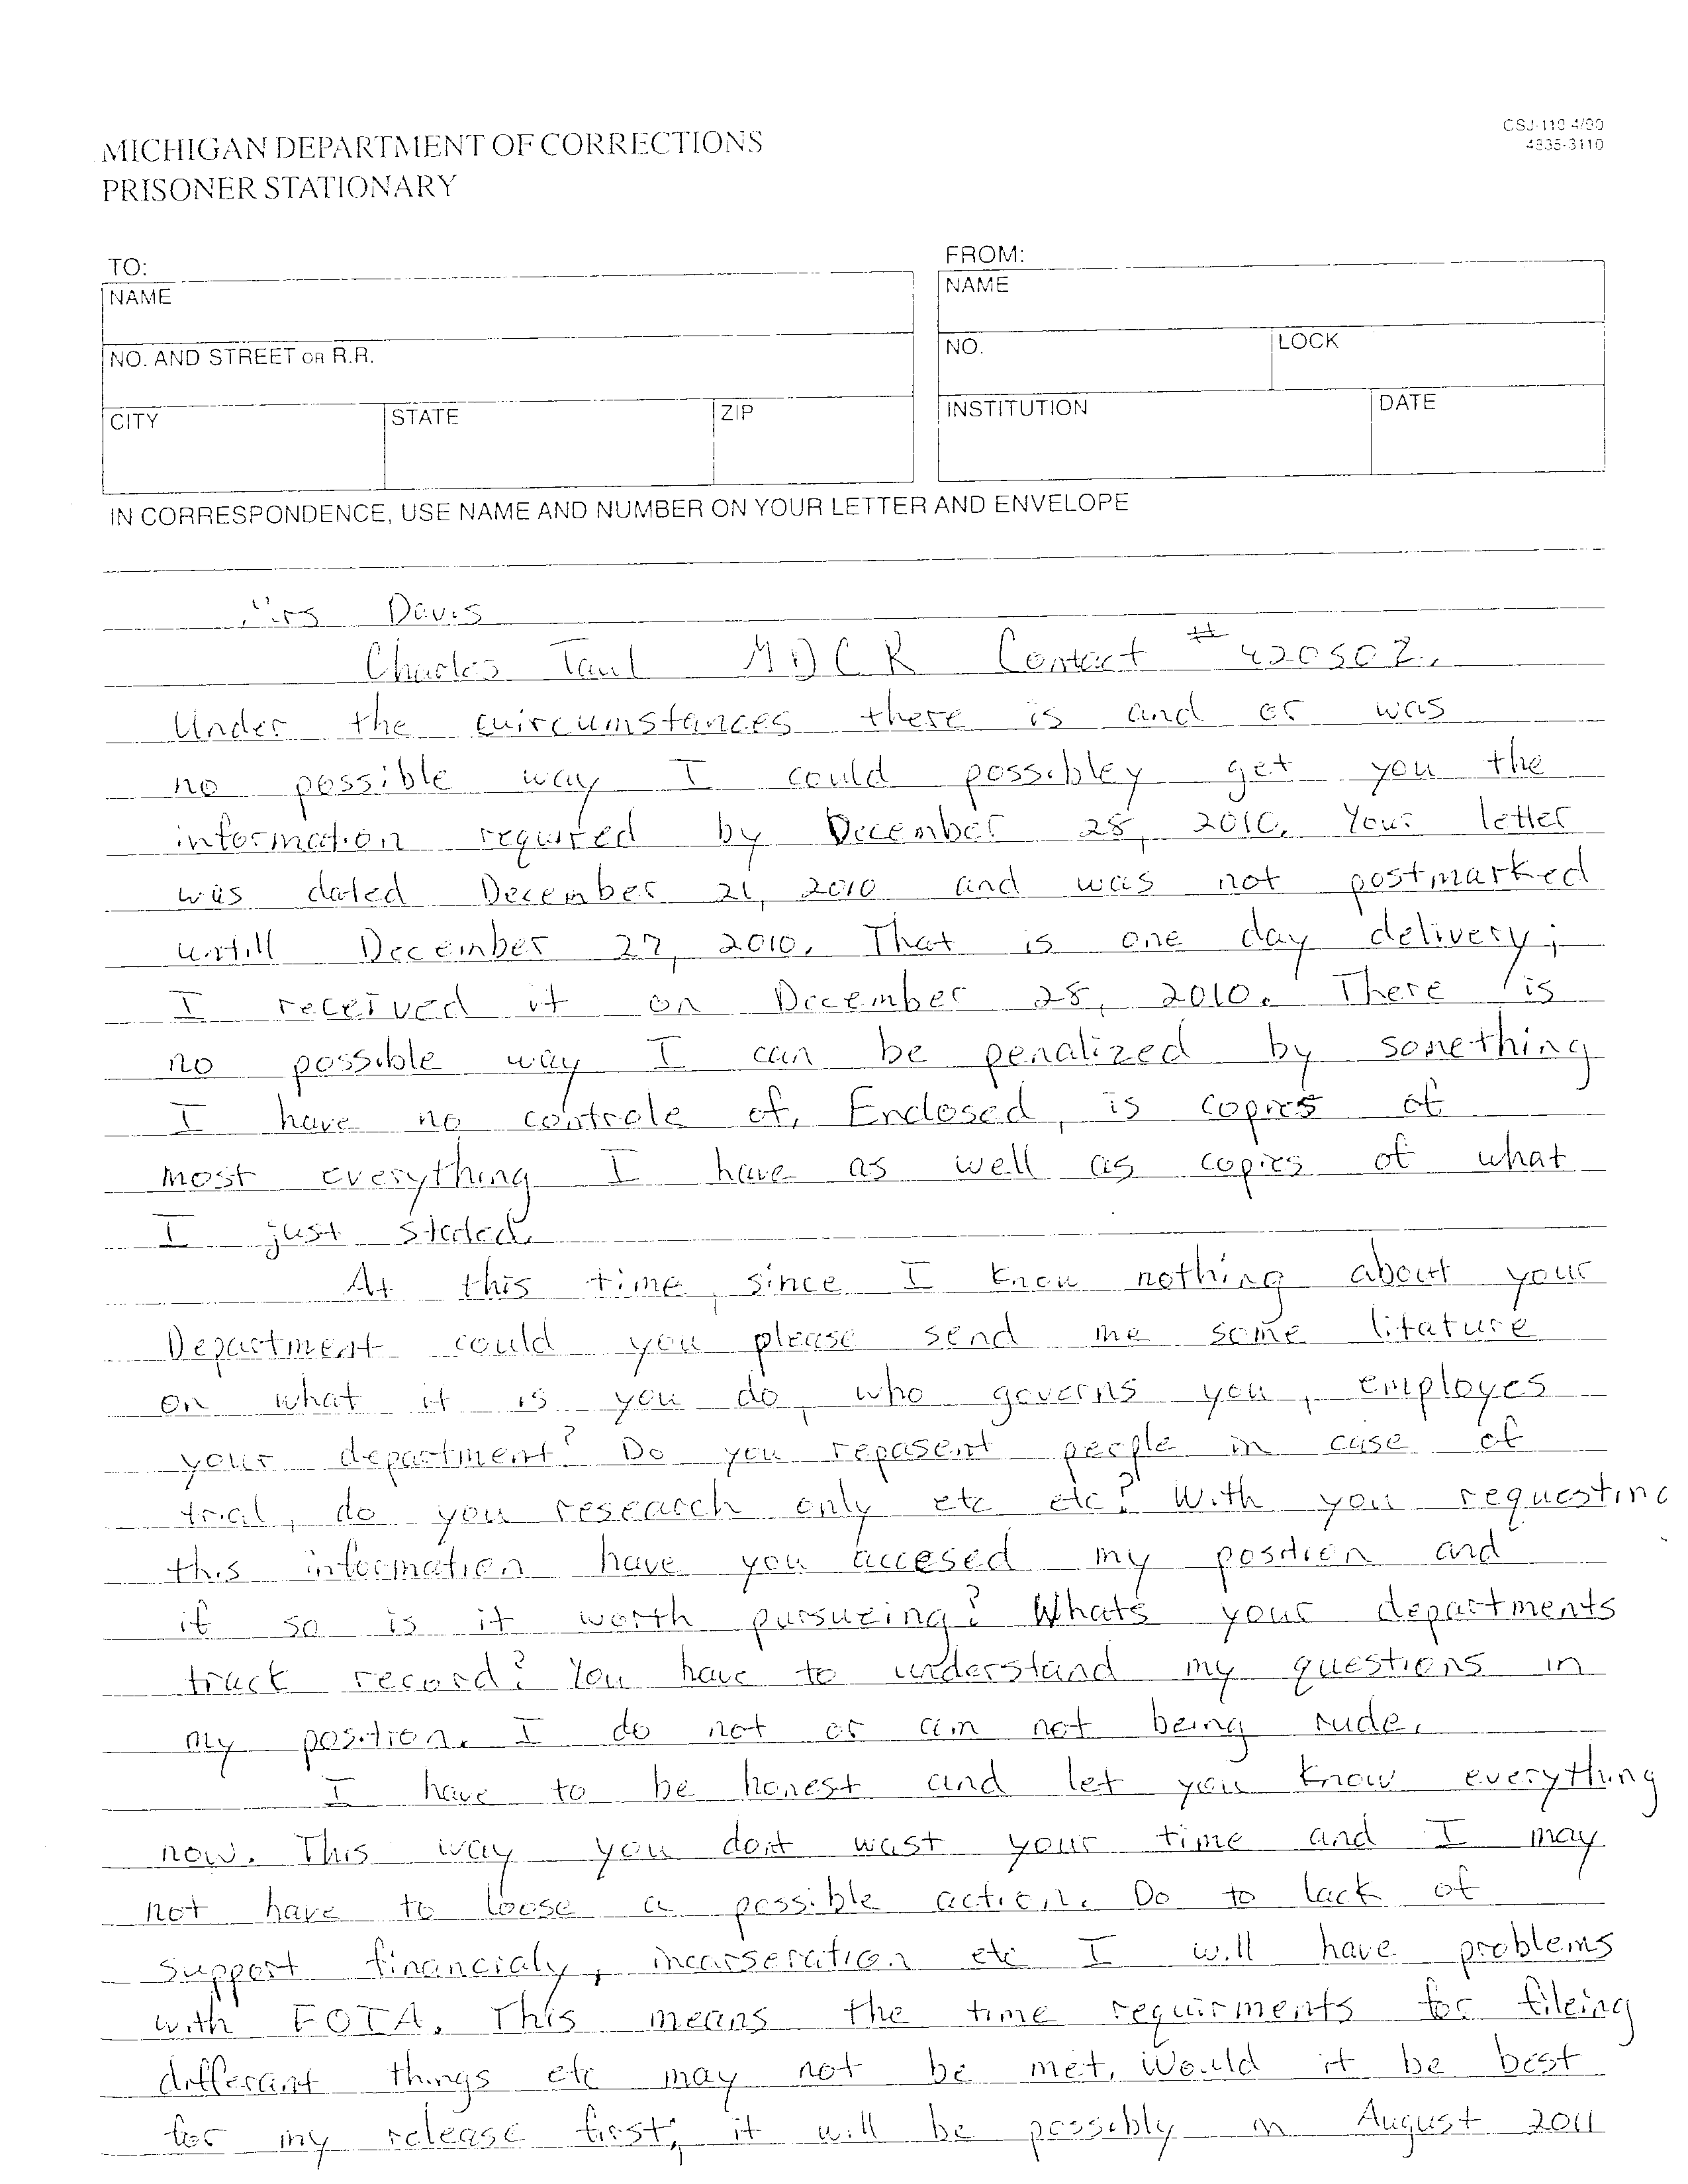 MICHIGAN DEPARTMENT OF CORRECTIONS
PRISONER STATIONARY
CSJ-110 4/90
4835-3110
TO:
NAME
NO. AND STREET OR R.R.
CITY STATE ZIP
FROM:
NAME
NO. LOCK
INSTITUTION DATE
IN CORRESPONDENCE, USE NAME AND NUMBER ON YOUR LETTER AND ENVELOPE
Mrs Davis
Charles Taul MDCR Contact # 420502.
Under the cuircumstances there is and or was
no possible way I could possibley get you the
information required by December 28, 2010. Your letter
was dated December 21, 2010 and was not postmarked
untill December 27, 2010. That is one day delivery;
I received it on December 28, 2010. There is
no possible way I can be penalized by something
I have no controle of. Enclosed, is copies of
most everything I have as well as copies of what
I just stated.
At this time, since I know nothing about your
Department could you please send me some litature
on what it is you do, who governs you, employes
your department? Do you repasent people in case of
trial, do you research only etc etc? With you requesting
this information have you accesed my position and
if so is it worth pursueing? Whats your departments
track record? You have to understand my questions in
my position. I do not or am not being rude.
I have to be honest and let you know everything
now. This way you dont wast your time and I may
not have to loose a possible action. Do to lack of
support financialy, incarseration etc I will have problems
with FOIA. This means the time requirments for fileing
differant things etc may not be met. Would it be best
for my release first; it will be possibly in August 2011